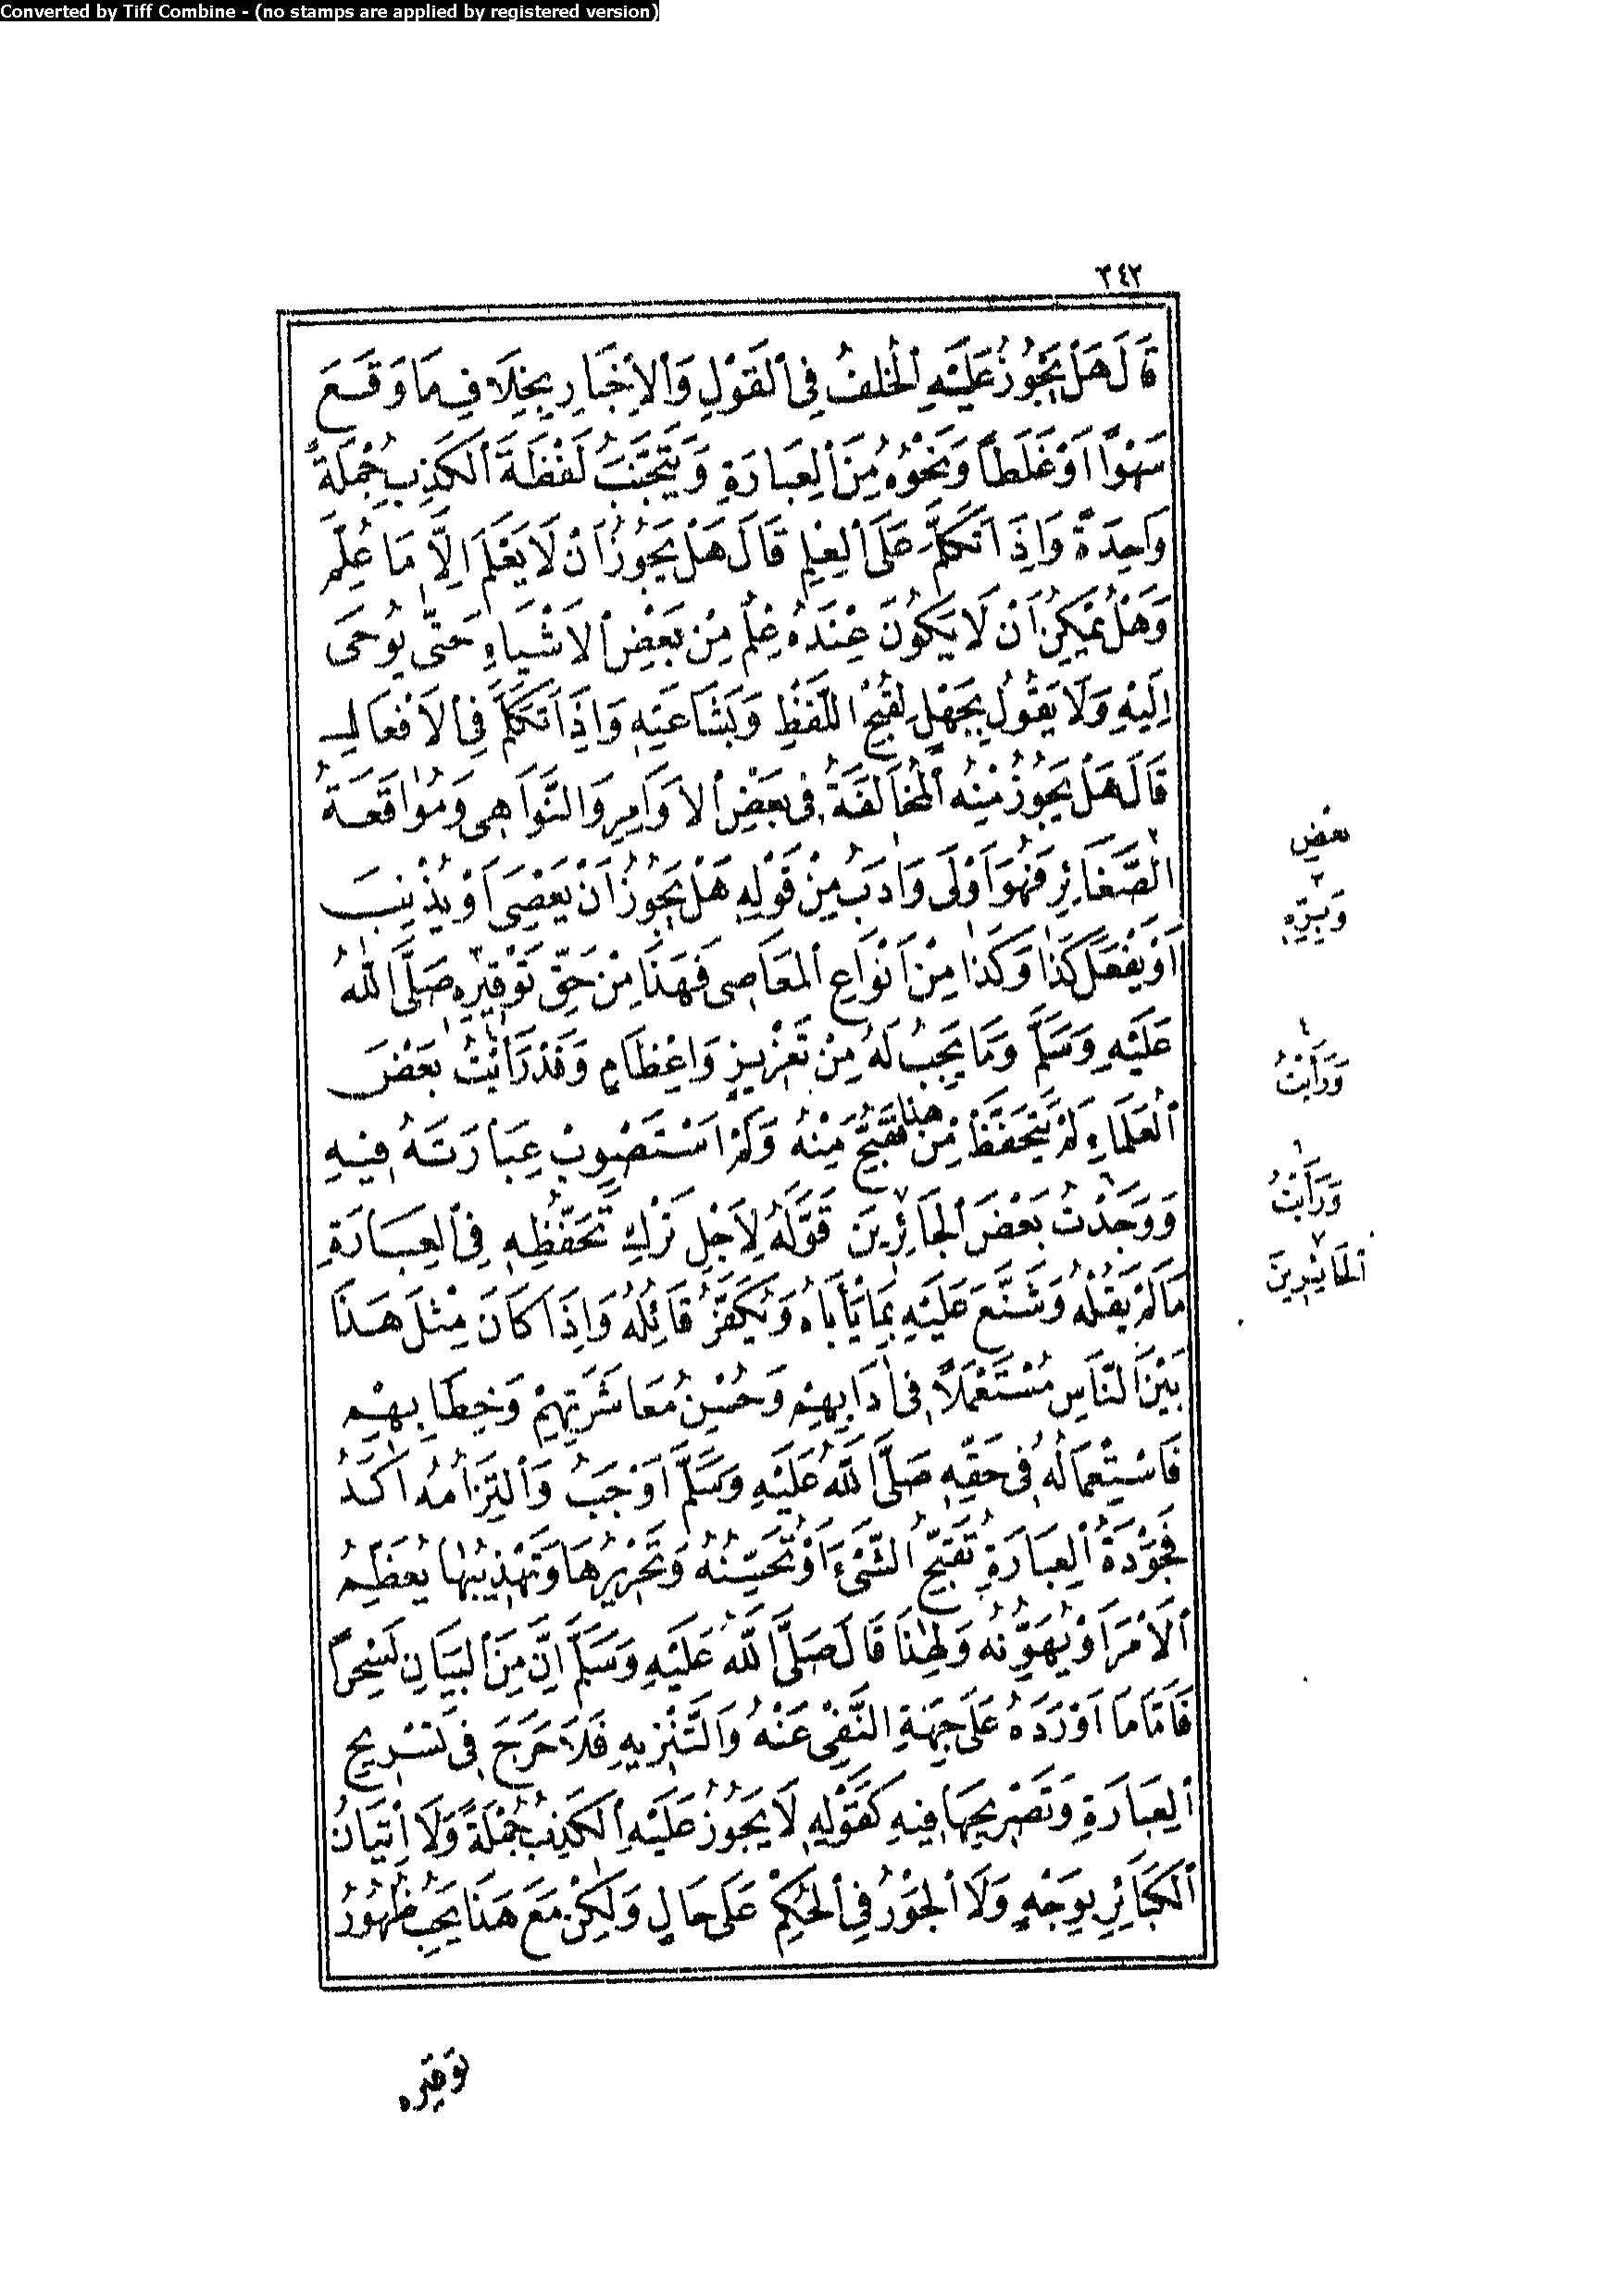 Converted by Tiff Combine - (no stamps are applied by registered version)
٢٤٢
قَالَ هَلْ يَجُوزُ عَلَيْهِ الْخُلْفُ فِى الْقَوْلِ وَالْاِخْبَارِ بِخِلَافِ مَا وَقَعَ
سَهْوًا اَوْ غَلَطًا وَنَحْوُهُ مِنَ الْعِبَارَةِ وَيَتَجَنَّبُ لَفْظَةَ الْكَذِبِ جُمْلَةً
وَاحِدَةً وَاِذَا تَكَلَّمَ عَلَى الْعِلْمِ قَالَ هَلْ يَجُوزُ اَنْ لَا يَعْلَمَ اِلَّا مَا عُلِّمَ
وَهَلْ يُمْكِنُ اَنْ لَا يَكُونَ عِنْدَهُ عِلْمٌ مِنْ بَعْضِ الْاَشْيَاءِ حَتّٰى يُوحَى
اِلَيْهِ وَلَا يَقُولُ بِجَهْلٍ لِقُبْحِ اللَّفْظِ وَبَشَاعَتِهِ وَاِذَا تَكَلَّمَ فِى الْاَفْعَالِ
قَالَ هَلْ يَجُوزُ مِنْهُ الْمُخَالَفَةُ فِى بَعْضِ الْاَوَامِرِ وَالنَّوَاهِى وَمُوَاقَعَةُ
الصَّغَائِرِ فَهُوَ اَوْلَى وَاٰدَبُ مِنْ قَوْلِهِ هَلْ يَجُوزُ اَنْ يَعْصِىَ اَوْ يُذْنِبَ
اَوْ يَفْعَلَ كَذَا وَكَذَا مِنْ اَنْوَاعِ الْمَعَاصِى فَهٰذَا مِنْ حَقِّ تَوْقِيرِهِ صَلَّى اللّٰهُ
عَلَيْهِ وَسَلَّمَ وَمَا يَجِبُ لَهُ مِنْ تَعْزِيزٍ وَاِعْظَامٍ وَقَدْ رَاَيْتُ بَعْضَ
الْعُلَمَاءِ لَمْ يَتَحَفَّظْ مِنْ هٰذَا فَقُبِّحَ مِنْهُ وَلَمْ اَسْتَصْوِبْ عِبَارَتَهُ فِيهِ
وَوَجَدْتُ بَعْضَ الْجَائِرِينَ قَوَّلَهُ لِاَجْلِ تَرْكِ تَحَفُّظِهِ فِى الْعِبَارَةِ
مَا لَمْ يَقُلْهُ وَشَنَّعَ عَلَيْهِ بِمَا يَأْبَاهُ وَيُكَفَّرُ قَائِلُهُ وَاِذَا كَانَ مِثْلُ هٰذَا
بَيْنَ النَّاسِ مُسْتَعْمَلًا فِى اٰدَابِهِمْ وَحُسْنِ مُعَاشَرَتِهِمْ وَخِطَابِهِمْ
فَاسْتِعْمَالُهُ فِى حَقِّهِ صَلَّى اللّٰهُ عَلَيْهِ وَسَلَّمَ اَوْجَبُ وَالْتِزَامُهُ اٰكَدُ
فَجَوْدَةُ الْعِبَارَةِ تُقَبِّحُ الشَّىْءَ اَوْ تُحَسِّنُهُ وَتَحْرِيرُهَا وَتَهْذِيبُهَا يُعَظِّمُ
الْاَمْرَ اَوْ يُهَوِّنُهُ وَلِهٰذَا قَالَ صَلَّى اللّٰهُ عَلَيْهِ وَسَلَّمَ اِنَّ مِنَ الْبَيَانِ لَسِحْرًا
فَاَمَّا مَا اَوْرَدَهُ عَلَى جِهَةِ النَّفْىِ عَنْهُ وَالتَّنْزِيهِ فَلَا حَرَجَ فِى تَسْرِيحِ
الْعِبَارَةِ وَتَصْرِيحِهَا فِيهِ كَقَوْلِهِ لَا يَجُوزُ عَلَيْهِ الْكَذِبُ جُمْلَةً وَلَا اِتْيَانُ
الْكَبَائِرِ بِوَجْهٍ وَلَا الْجَوْرُ فِى الْحُكْمِ عَلَى حَالٍ وَلٰكِنْ مَعَ هٰذَا يَجِبُ ظُهُورُ
بعض
٢
وَبِبِرِّهِ
٤
وَرَاَيْتُ
٦
وَرَاَيْتُ
٧
الْحَائِرِينَ
تَوْقِيرِهِ